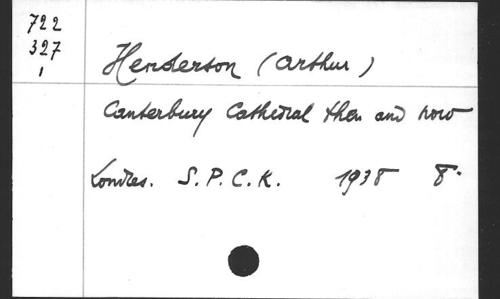 722
327
1
Henderson (Arthur)
Canterbury Cathedral then and now
Londres. S.P.C.K. 1938 8°